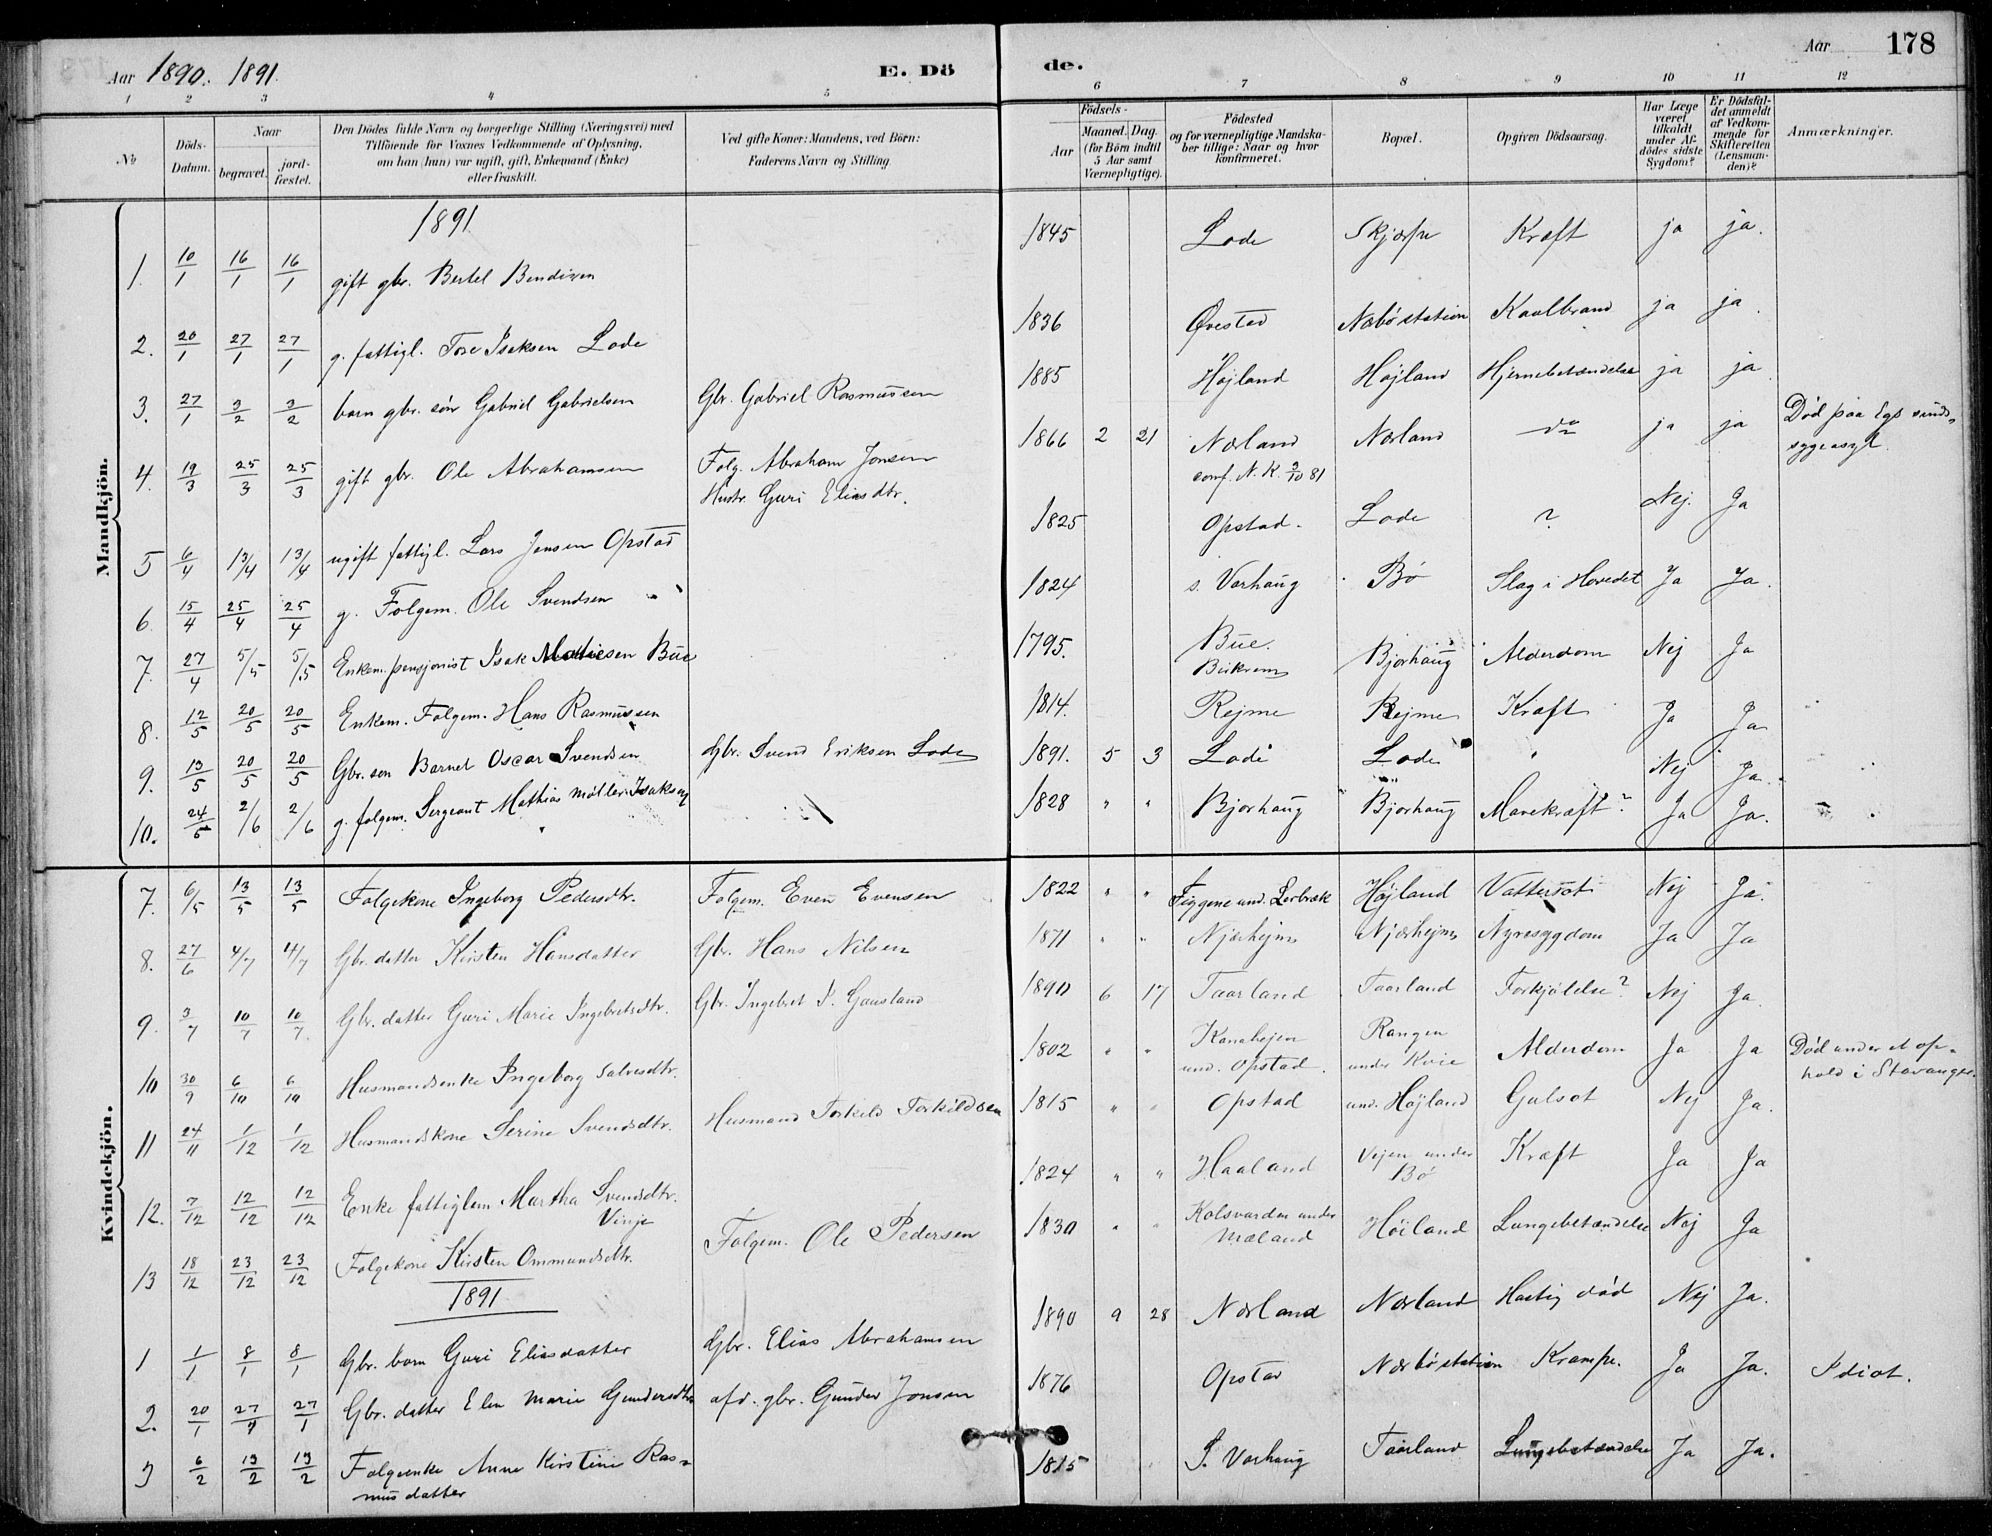 Aar 1890. 1891. E. Dö de. Aar 178
1 2 3 4 5 6 7 8 9 10 11 12
No
Döds-Datum.
Naar
begravet.
jord-fæstet.
Den Dödes fulde Navn og borgerlige Stilling (Næringsvei) med
Tilföiende for Voxnes Vedkommende af Oplysning,
om han (hun) var ugift, gift, Enkemand (Enke)
eller fraskilt.
Ved gifte Koner: Mandens, ved Börn:
Faderens Navn og Stilling.
Födsels-
Aar
Maaned. Dag.
(for Börn indtil
5 Aar samt
Værnepligtige).
Födested
og for værnepligtige Mandska-
ber tillige: Naar og hvor
konfirmeret.
Bopæl.
Opgiven Dödsaarsag.
Har Læge
været
tilkaldt
under Af-
dödes sidste
Sygdom?
Er Dödsfal-
det anmeldt
af Vedkom-
mende for
Skifteretten
(Lensman-
den)?
Anmærkninger.
Mandkjön.
1891
1. 10/1 16/1 16/1 gift gbr. Bertel Bendixen 1845 Lode Skjærpe Kræft ja ja.
2. 20/1 27/1 27/1 g. fattigl. Tore Isaksen Lode 1836 Øvestad Nærbø station Kaalbrand ja ja.
3. 27/1 3/2 3/2 barn gbr. søn Gabriel Gabrielsen Gbr. Gabriel Rasmussen 1885 Højland Højland Hjernebetændelse ja ja
4. 19/3 25/3 25/3 gift gbr. Ole Abrahamsen Folg. Abraham Jonsen 1866 2 21 Nærland Nærland do ja ja Død paa Egs sinds-
Hustr. Guri Eliasdtr. conf. N. K. 2/10 81 sygeasyl.
5 6/4 13/4 13/4 ugift fattigl. Lars Jensen Opstad 1825 Opstad. Lode ? Nej. Ja
6. 15/4 25/4 25/4 g. Folgem. Ole Svendsen 1824 s. Varhaug Bø Slag i Hovedet Ja Ja.
7. 27/4 5/5 5/5 Enkem. pensjonist Isak Mathiesen Bue 1795. Bue. Bjorhaug Alderdom Nej Ja
Bjerkrem
8. 12/5 20/5 20/5 Enkem. Folgem. Hans Rasmussen 1814. Rejme Rejme Kræft Ja Ja
9. 13/5 20/5 20/5 Gbr. søn Barnet Oscar Svendsen Gbr. Svend Eriksen Lode 1891. 5 3 Lode Lode " Nej Ja.
10. 24/5 2/6 2/6 g. folgem. Sergeant Mathias Møller Isaksen 1828 " " Bjorhaug Bjorhaug Mavekræft? Ja Ja.
Kvindekjön.
7. 6/5 13/5 13/5 Folgekone Ingeborg Pedersdtr. Folgem. Even Evensen 1822 " " Tiggene und. Lerbræk Højland Vattersot Nej Ja.
8. 27/6 4/7 4/7 Gbr. datter Kirsten Hansdatter Gbr. Hans Nilsen 1871 " " Njærhejm Njærhejm Nyresygdom Ja Ja
9. 3/7 10/7 10/7. Gbr. datter Guri Marie Ingebretsdtr. Gbr. Ingebret P. Gausland 1890 6 17 Taarland Taarland Forkjølelse? Nej Ja.
10 30/9 6/10 6/10 Husmandsenke Ingeborg Salvesdtr. 1802 " " Kanahejen Rangen Alderdom Ja Ja Død under et op-
und. Opstad. under Kvie hold i Stavanger.
11 24/11 1/12 1/12 Husmandskone Serine Svendsdtr. Husmand Torkild Torkildsen 1815 " " Opstad und. Højland Gulsot Nej Ja.
12. 7/12 12/12 12/12 Enke fattiglem Martha Svendsdtr. 1824 " " Haaland Vejen under Kræft Ja Ja
Vinje Bø
13 18/12 23/12 23/12 Folgekone Kirsten Ommundsdtr. Folgem. Ole Pedersen 1830 " " Kolsvarden under Høiland Lungebetændelse Nej Ja
Mæland
1891
1 1/1 8/1 8/1 Gbr. barn Guri Eliasdatter Gbr. Elias Abrahamsen 1890 9 28 Nærland Nærland Hastig død Nej Ja.
2. 20/1 27/1 27/1 Gbr. datter Elen Marie Gundersdtr. afd. gbr. Gunder Jonsen 1876 Opstad Nærbø station Krampe. Ja Ja. Idiot.
3 6/2 13/2 13/2 Folgeenke Anne Kirstine Ras- 1815 S. Varhaug Taarland Lungebetændelse Ja Ja.
musdatter